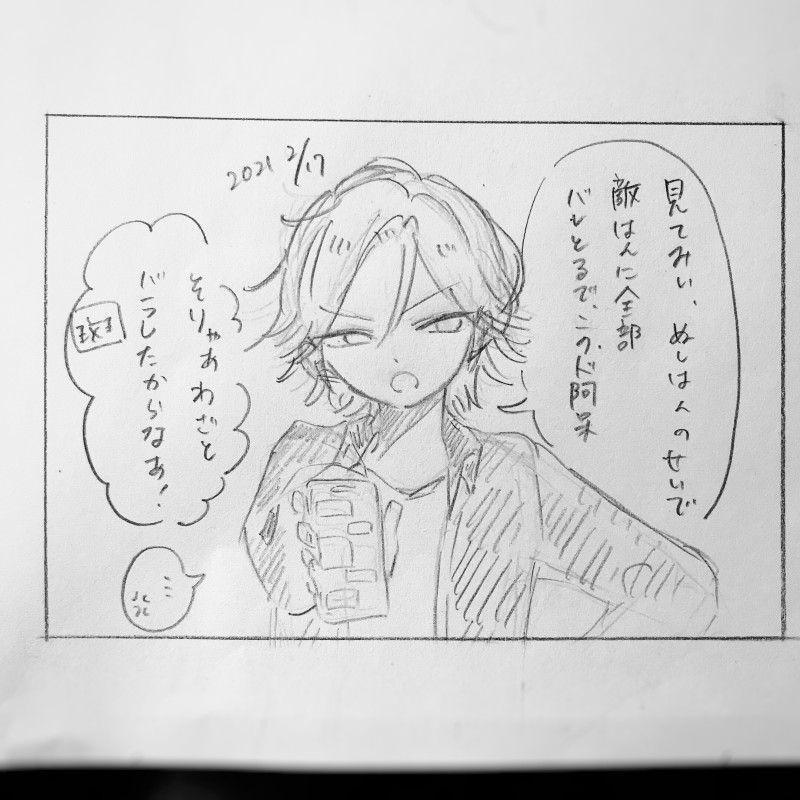 2021 2/17
見てみい、ぬしはんのせいで
敵はんに全部
バレとるで、このド阿呆
そりゃあわざと
バラしたからなあ！
斑